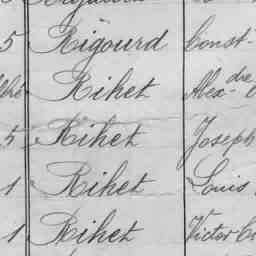 5 Rigourd Const
Rihet Alex-dre
5 Rihet Joseph
1 Rihet Louis
1 Rihet Victor